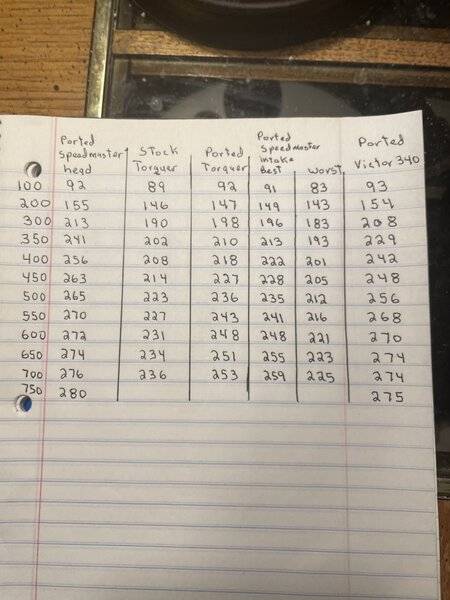 Ported Speedmaster head | Stock Torquer | Ported Torquer | Ported Speedmaster intake Best | worst | Ported Victor 340
100 92 89 92 91 83 93
200 155 146 147 149 143 154
300 213 190 198 196 183 208
350 241 202 210 213 193 229
400 256 208 218 222 201 242
450 263 214 227 228 205 248
500 265 223 236 235 212 256
550 270 227 243 241 216 268
600 272 231 248 248 221 270
650 274 234 251 255 223 274
700 276 236 253 259 225 274
750 280 275